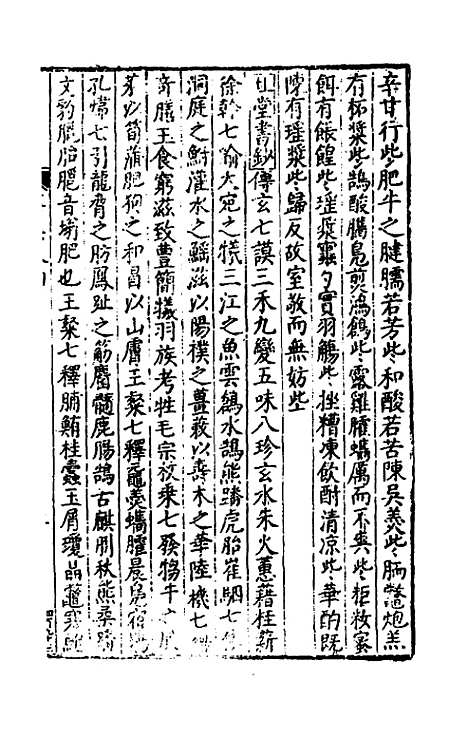 辛甘行些肥牛之腱臑若芳些和酸若苦陳吳羹些胹鱉炮羔
有柘漿些鵠酸臇鳧煎鴻鶬些露雞臛蠵厲而不爽些粔籹蜜
餌有餦餭些瑤漿蜜勺實羽觴些挫糟凍飲酎清凉些華酌既
陳有瑤漿些歸反故室敬而無妨些
北堂書鈔傅玄七謨三禾九變五味八珍玄水朱火蕙藉桂薪
徐幹七喻大宛之犧三江之魚雲鶬水鵠熊蹯虎胎崔駰七依
洞庭之鮒灌水之鰩滋以陽樸之薑蔌以壽木之華陸機七
膳王食窮滋致豊簡犧羽族考牲毛宗枚乘七發犓牛之
菜以筍蒲肥狗之和冒以山膚王粲七釋黿羹蠵臛晨鳧宿
孔煒七引龍胥之肪鳳趾之筋麕髓鹿腸鵠古麒熊
文豹胎音肥也王粲七釋鮪桂蠹玉屑瓊